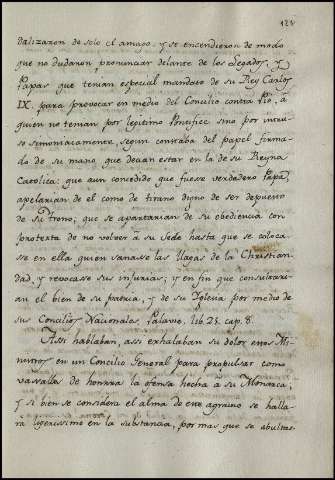 128
dalizaron de solo el amago, y se encendieron de modo
que no dudaron pronunciar delante de los Legados, y
Papas que tenian especial mandato de su Rey Carlos
IX. para provocar en medio del Concilio contra Pio, á
quien no tenian por legitimo Pontifice sino por intru-
so simoniacamente, segun constaba del papel firma-
do de su mano, que decian estar en la de su Reyna
Catolica: que aun concedido que fuese verdadero Papa,
apelarian de el como de tirano digno de ser depuesto
de su trono; que se apartarian de su obediencia con
protexta de no volver á su Sede hasta que se coloca-
se en ella quien sanase las llagas de la Christian-
dad, y revocase sus injurias; y en fin que consultari-
an el bien de su patria, y de su Iglesia por medio de
sus Concilios Nacionales. Palavic. lib. 23. cap. 8.
Assi hablaban, assi exhalaban su dolor estos Mi-
nistros en un Concilio General para propulsar como
vasallos de honrra la ofensa hecha á su Monarca;
y si bien se considera el alma de este agravio se halla-
ra ligerissimo en la substancia, por mas que se abultase